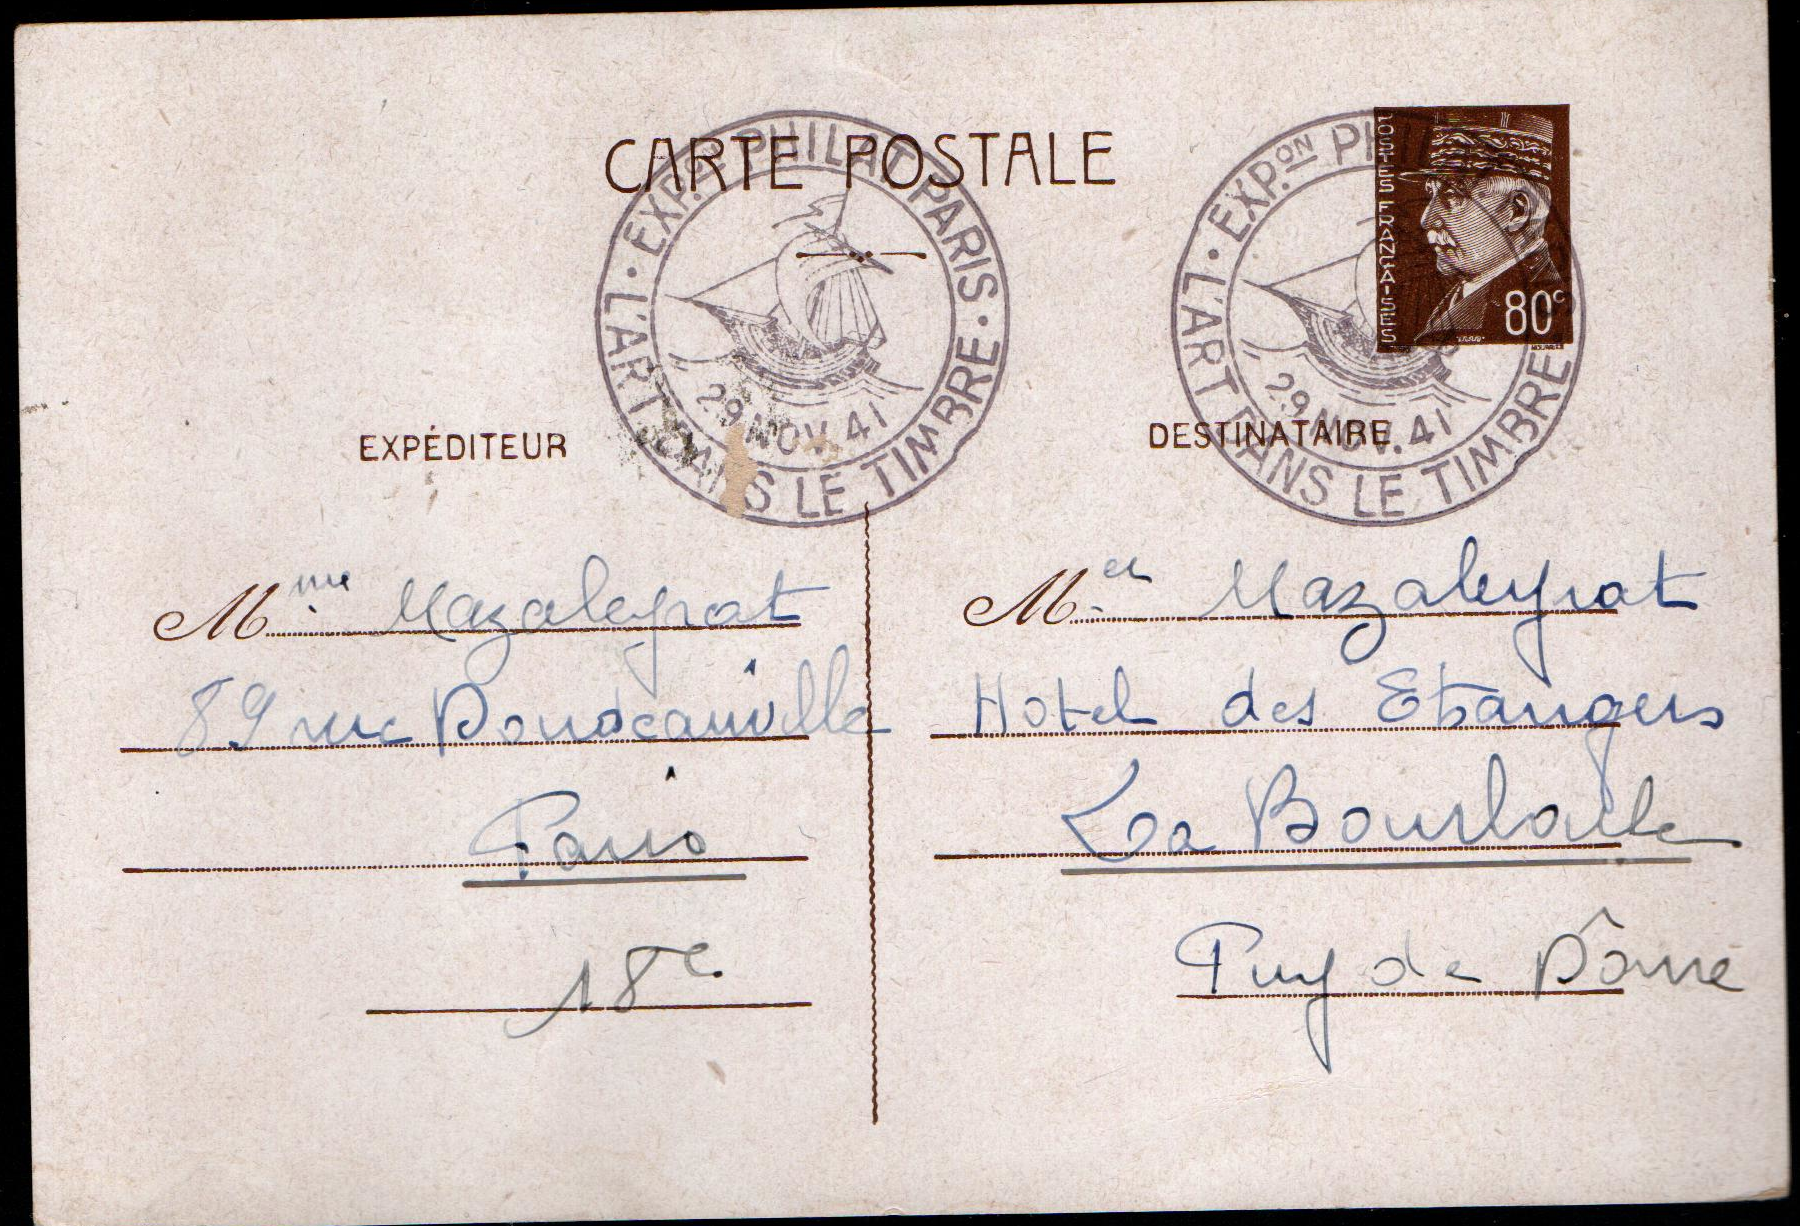 CARTE POSTALE
EXP.ON PHILAT. PARIS · L'ART DANS LE TIMBRE ·
29 NOV. 41
EXP.ON PH
L'ART DANS LE TIMBRE
29 NOV. 41
POSTES FRANÇAISES
80c
EXPÉDITEUR
Mme Mazaleyrat
89 rue Doudeauville
Paris
18e
DESTINATAIRE
Mer Mazaleyrat
Hotel des Etrangers
La Bourboule
Puy de Dôme